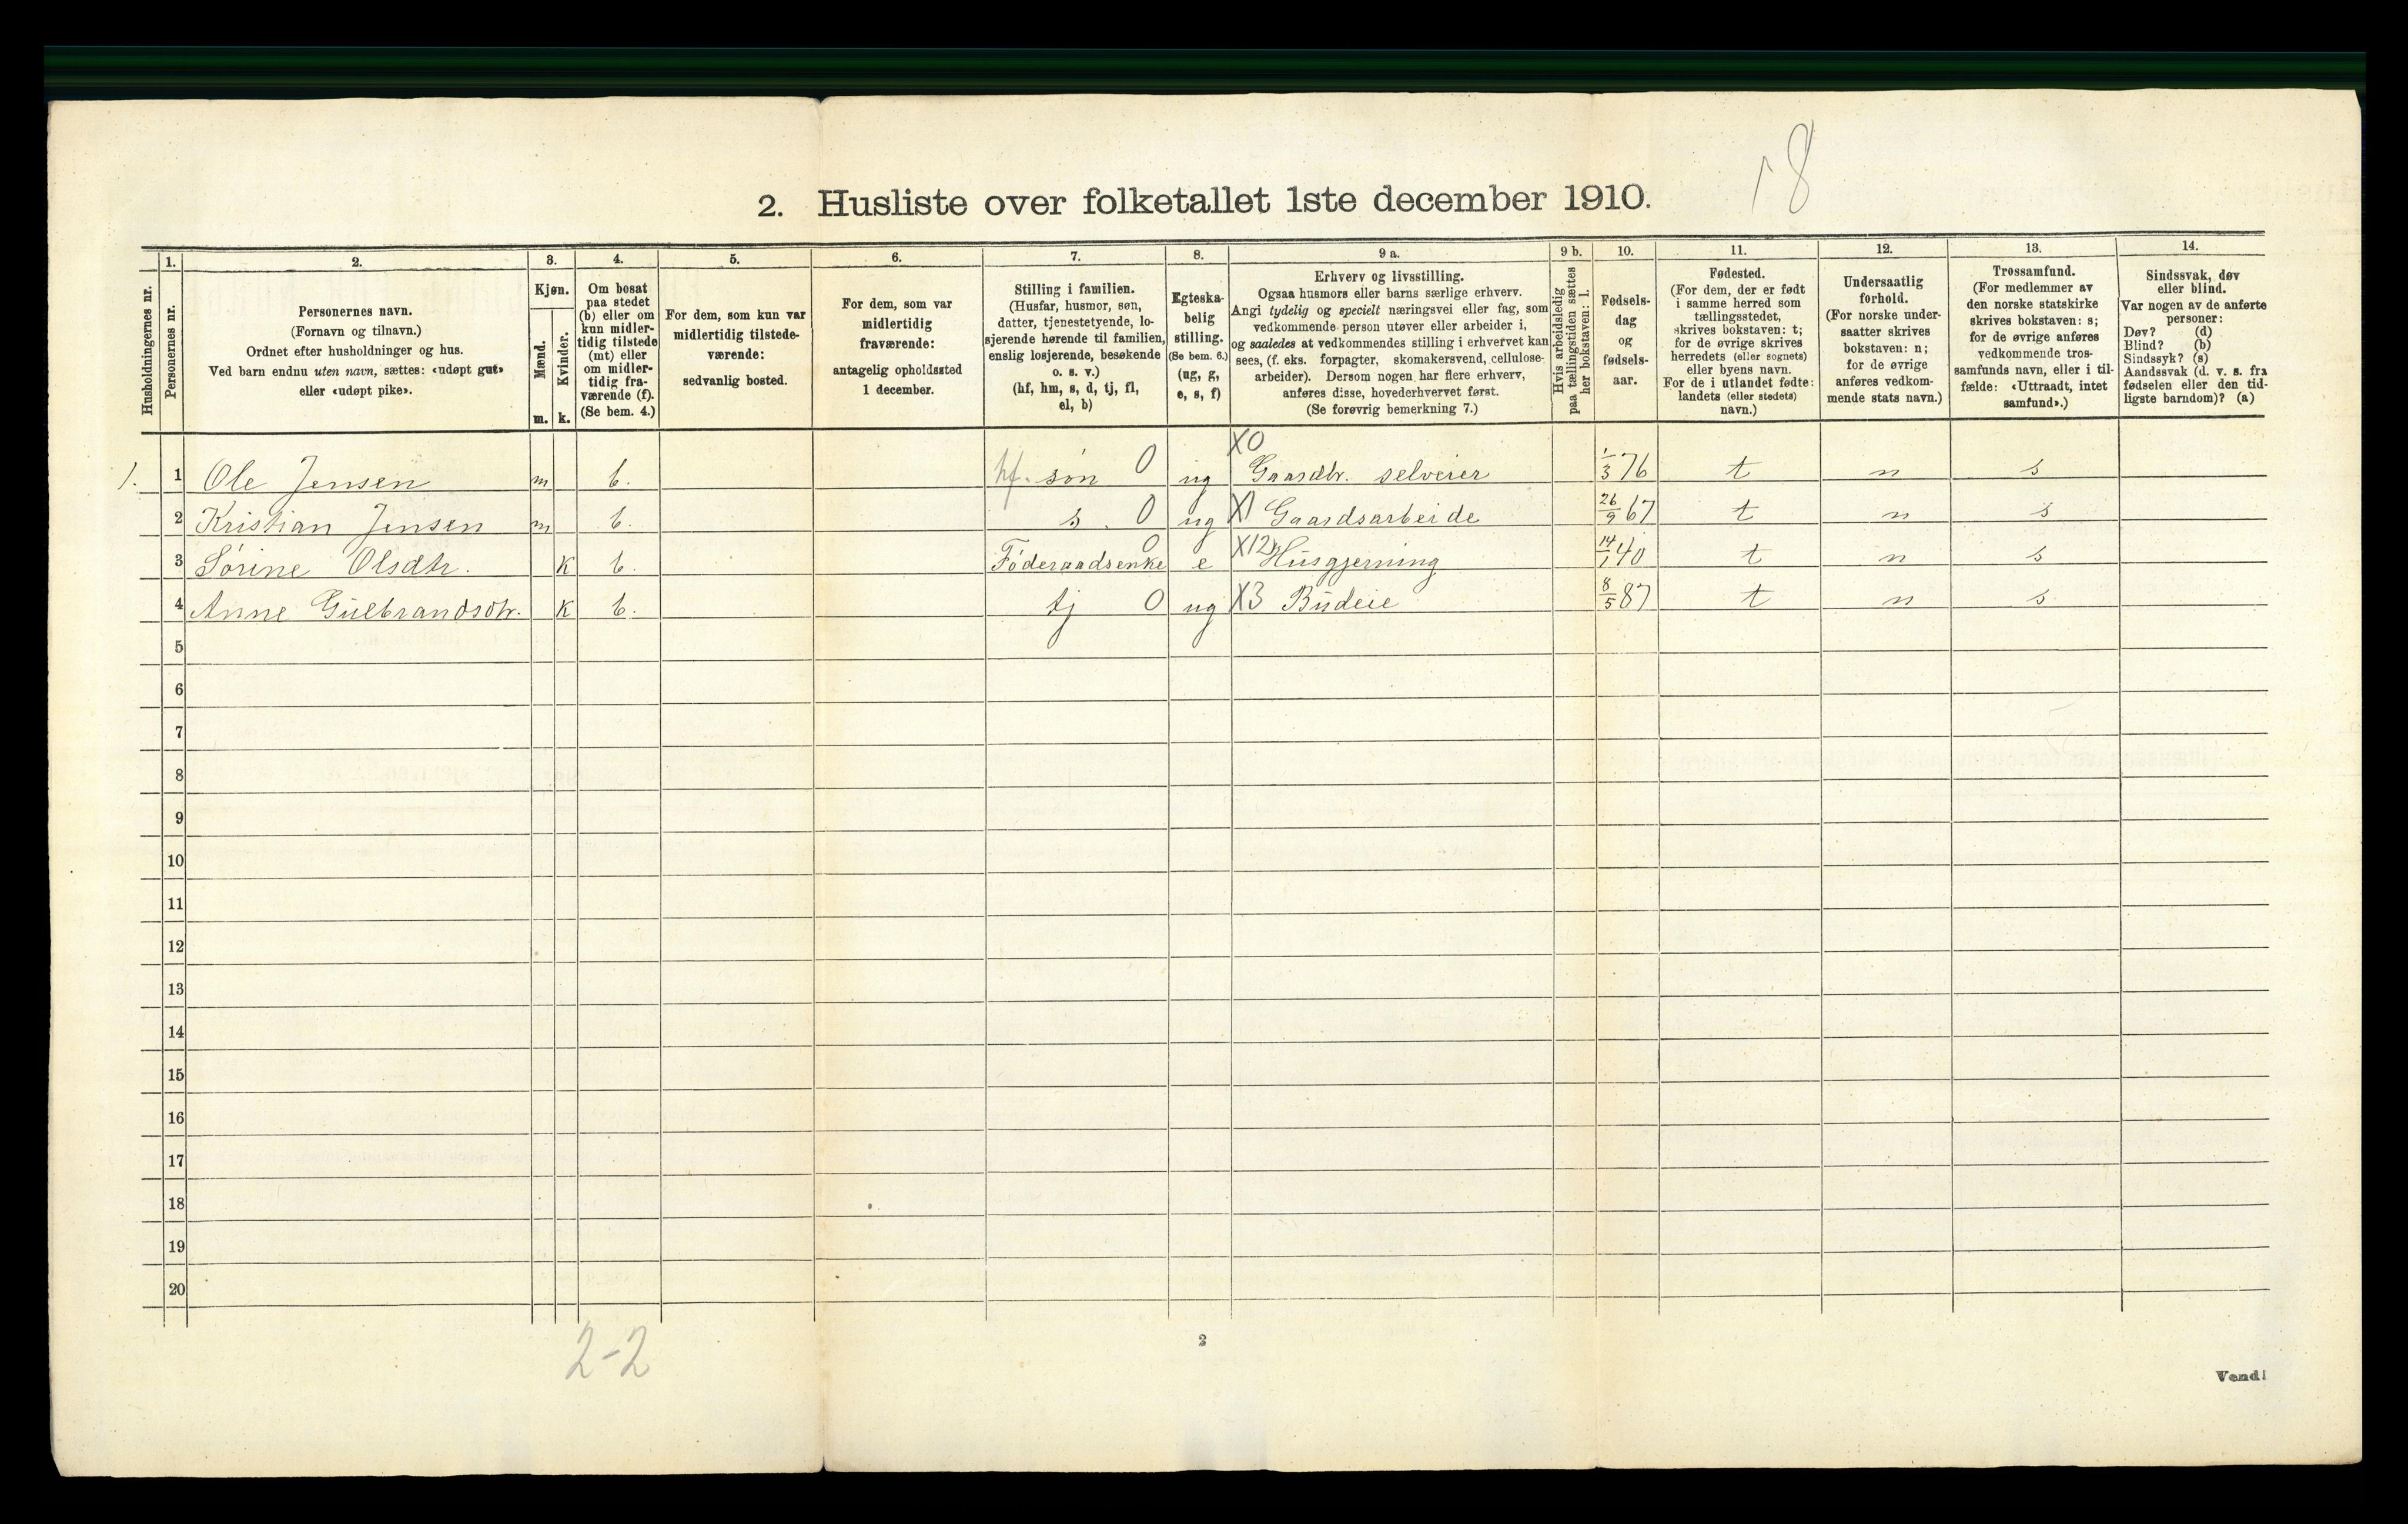 18
2. Husliste over folketallet 1ste december 1910.
Husholdningernes nr.
1.
Personernes nr.
2.
Personernes navn.
(Fornavn og tilnavn.)
Ordnet efter husholdninger og hus.
Ved barn endnu uten navn, sættes: «udøpt gut»
eller «udøpt pike».
3.
Kjøn.
Mænd.
Kvinder.
m. k.
4.
Om bosat
paa stedet
(b) eller om
kun midler-
tidig tilstede
(mt) eller
om midler-
tidig fra-
værende (f).
(Se bem. 4.)
5.
For dem, som kun var
midlertidig tilstede-
værende:
sedvanlig bosted.
6.
For dem, som var
midlertidig
fraværende:
antagelig opholdssted
1 december.
7.
Stilling i familien.
(Husfar, husmor, søn,
datter, tjenestetyende, lo-
sjerende hørende til familien,
enslig losjerende, besøkende
o. s. v.)
(hf, hm, s, d, tj, fl,
el, b)
8.
Egteska-
belig
stilling.
(Se bem. 6.)
(ug, g,
e, s, f)
9 a.
Erhverv og livsstilling.
Ogsaa husmors eller barns særlige erhverv.
Angi tydelig og specielt næringsvei eller fag, som
vedkommende person utøver eller arbeider i,
og saaledes at vedkommendes stilling i erhvervet kan
sees, (f. eks. forpagter, skomakersvend, cellulose-
arbeider). Dersom nogen har flere erhverv,
anføres disse, hovederhvervet først.
(Se forøvrig bemerkning 7.)
9 b.
Hvis arbeidsledig
paa tællingstiden sættes
her bokstaven: l.
10.
Fødsels-
dag
og
fødsels-
aar.
11.
Fødested.
(For dem, der er født
i samme herred som
tællingsstedet,
skrives bokstaven: t;
for de øvrige skrives
herredets (eller sognets)
eller byens navn.
For de i utlandet fødte:
landets (eller stedets)
navn.)
12.
Undersaatlig
forhold.
(For norske under-
saatter skrives
bokstaven: n;
for de øvrige
anføres vedkom-
mende stats navn.)
13.
Trossamfund.
(For medlemmer av
den norske statskirke
skrives bokstaven: s;
for de øvrige anføres
vedkommende tros-
samfunds navn, eller i til-
fælde: «Uttraadt, intet
samfund».)
14.
Sindssvak, døv
eller blind.
Var nogen av de anførte
personer:
Døv? (d)
Blind? (b)
Sindssyk? (s)
Aandssvak (d. v. s. fra
fødselen eller den tid-
ligste barndom)? (a)
1. 1 Ole Jensen m b. hf. søn 0 ug X0 Gaardbr. selveier 1/3 76 t n s
2 Kristian Jensen m b. s. 0 ug X1 Gaardsarbeide 26/9 67 t n s
3 Sørine Olsdtr. K b. Føderaadsenke 0 e X12 Husgjerning 14/1 40 t n s
4 Anne Gulbrandsdtr. K b. tj 0 ug X3 Budeie 8/5 87 t n s
5
6
7
8
9
10
11
12
13
14
15
16
17
18
19
20
2-2
2
Vend!